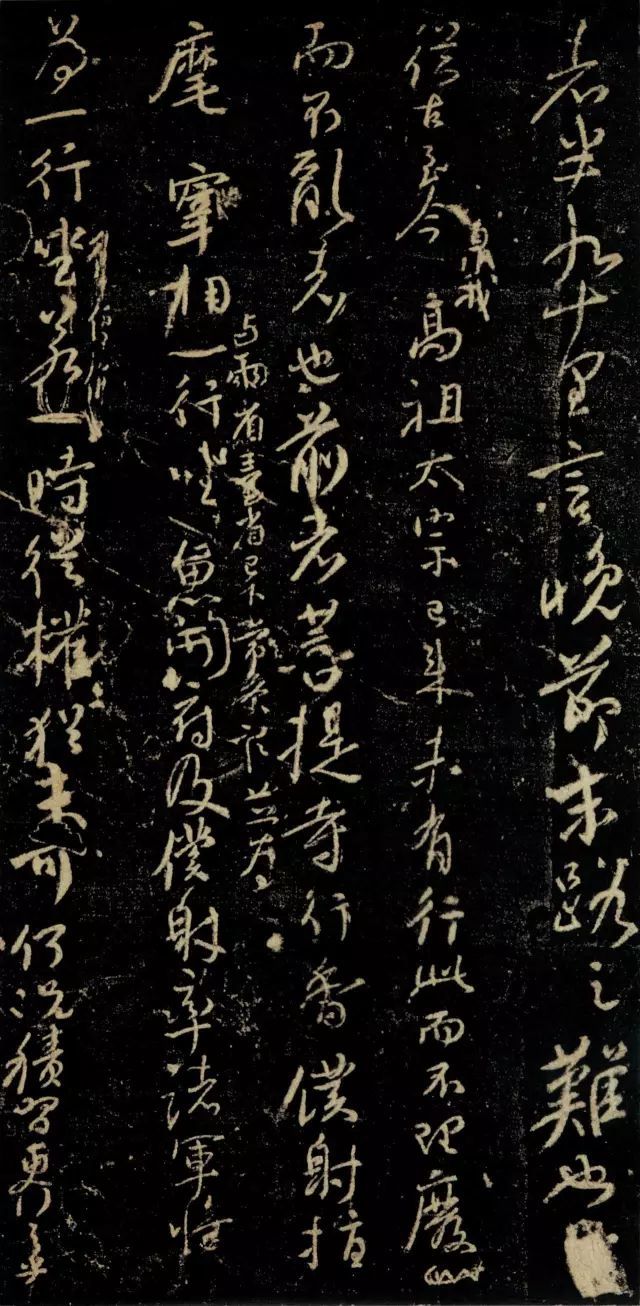 者半九十里言晚節末路之難也
從古至今皇我高祖太宗已來未有行此而不理廢
而不亂者也前者菩提寺行香僕射指
麾宰相與兩省臺省已下常參官並為一行坐魚開府及僕射率諸軍將
為一行坐若一時從權猶未可何況積習更行之乎